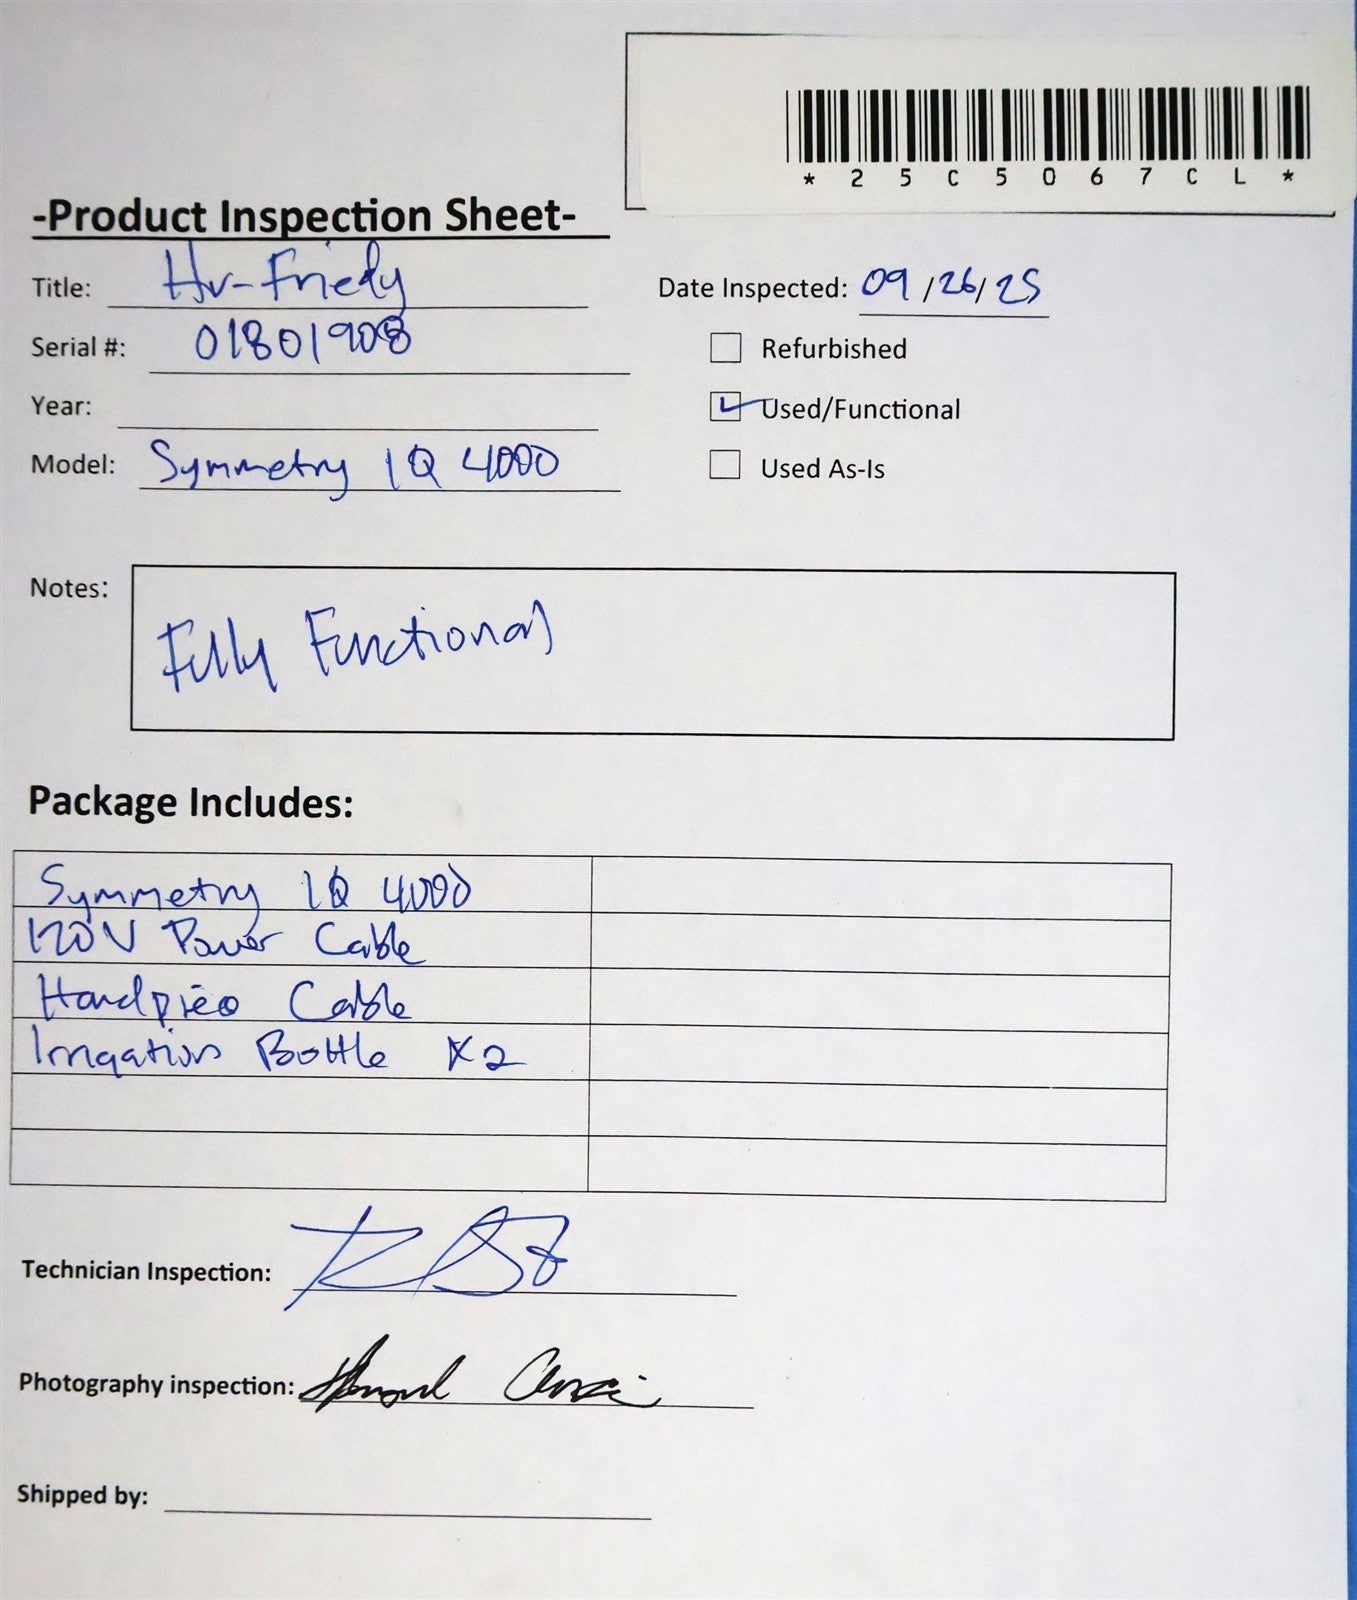 *25C5067CL*
-Product Inspection Sheet-
Title: Hu-Friedy
Date Inspected: 09/26/25
Serial #: 01801908
Refurbished
Year:
Used/Functional
Model: Symmetry IQ 4000
Used As-Is
Notes:
Fully Functional
Package Includes:
Symmetry IQ 4000
120V Power Cable
Handpiece Cable
Irrigation Bottle x2
Technician Inspection:
Photography inspection:
Shipped by: